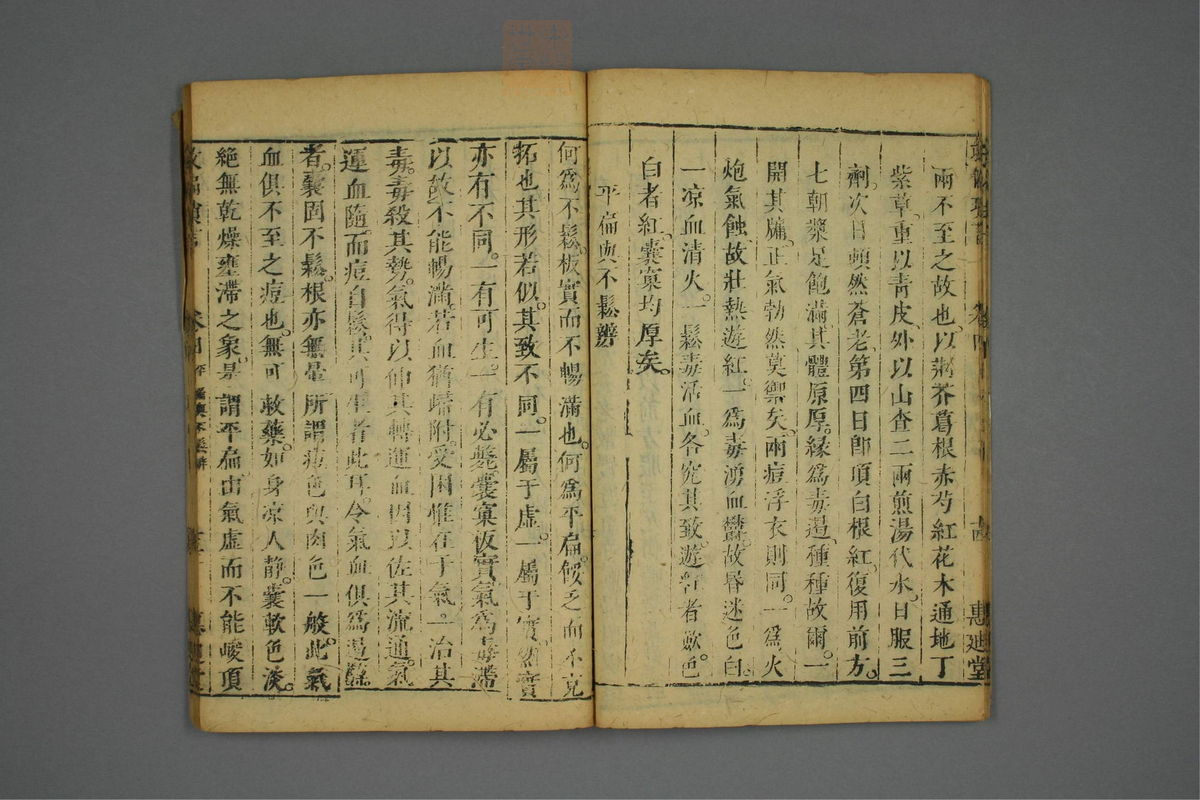 兩不至之故也以荊芥葛根赤芍紅花木通地丁
紫草重以青皮外以山查二兩煎湯代水日服三
劑次日頓然蒼老第四日卽頂白根紅復用前方
七朝漿足飽滿其體原厚緣爲毒遏種種故爾一
開其牖正氣勃然莫禦矣兩痘浮衣則同一爲火
炮氣蝕故壯熱遊紅一爲毒湧血鬱故昏迷色白
一凉血清火一鬆毒活血各究其致遊者歛色
白者紅囊窠均厚矣
平扁與不鬆辨
何爲不鬆板實而不暢滿也何爲平扁餒乏而不克
拓也其形若似其致不同一屬于虛一屬于實然實
亦有不同一有可生一有必斃囊窠板實氣爲毒滯
以故不能暢滿若血猶歸附受困惟在于氣一治其
毒毒殺其勢氣得以伸其轉運血因以佐其流通氣
運血隨而痘自鬆其可生者此耳令氣血俱爲遏
者囊固不鬆根亦無暈所謂痘色與肉色一般此氣
血俱不至之痘也無可救藥如身凉人靜囊軟色淡
絕無乾燥壅滯之象是謂平扁由氣虛而不能峻頂
卷四
惠迪堂